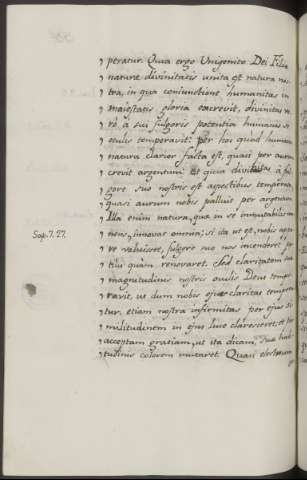 , peratur. Quia ergo Unigenito Dei Filio
, naturæ divinitatis unita est natura nos-
, tra, in qua coniunctione humanitas in
, maiestatis gloria excrevit, divinitas ve-
, rò à sui fulgoris potentia humanis se
, oculis temperavit: per hoc quod humana
, natura clarior facta est, quasi per aurum
, crevit argentum: et quia divinitas à ful-
, gore suo nostris est aspectibus temperata,
, quasi aurum nobis palluit per argentum.
, Illa enim natura, quæ in se immutabilis ma-
Sap. 7. 27. , nens, innovat omnia; si ita ut est, nobis appare-
, re voluisset, fulgore suo nos incenderet po-
, tius quàm renovaret. Sed claritatem suæ
, magnitudinis nostris oculis Deus tempe-
, ravit, ut dum nobis ejus claritas tempera-
, tur, etiam nostra infirmitas per ejus si-
, militudinem in ejus luce claresceret, et per
, acceptam gratiam, ut ita dicam, suæ habi-
, tudinis colorem mutaret. Quasi electrum